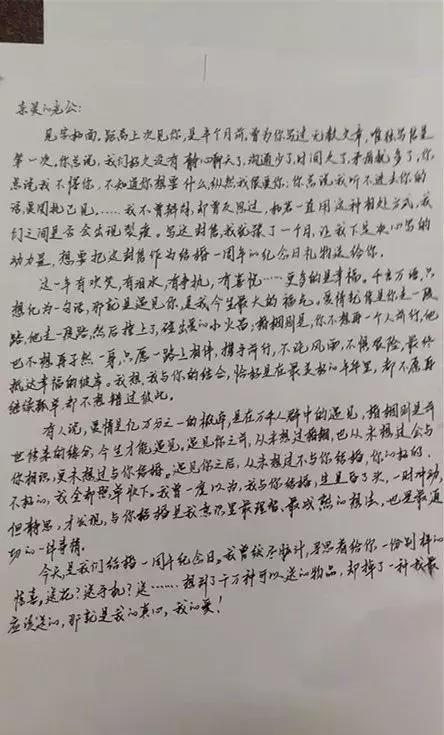 亲爱的老公:
见字如面,距离上次见你,是半个月前,曾为你写过无数文章,唯独写信是
第一次,你总说,我们好久没有静心聊天了,沟通少了,时间久了,矛盾就多了,你
总说我不懂你,不知道你想要什么,纵然我很爱你,你总说我听不进去你的
话,固执己见……我不曾辩解,却曾反思过,如若一直用这种相处方式,我
们之间是否会出现裂痕。写这封信我犹豫了一个月,让我下定决心写的
动力是,想要把这封信作为结婚一周年的纪念日礼物送给你。
这一年有欢笑,有泪水,有争执,有喜悦……更多的是幸福。千言万语,只
想化为一句话,那就是遇见你,是我今生最大的福气。爱情就像是你走一段
路,他走一段路,然后撞上了,碰出爱的小火苗,婚姻则是,你不想再一个人前行,他
也不想再孑然一身,只愿一路上相伴,携手前行,不论风雨,不惧艰险,最终
抵达幸福的彼岸。我想,我与你的结合,恰好是在最美好的年华里,都不愿再
继续孤单,都不想错过彼此。
有人说,爱情是亿万分之一的概率,是在万千人群中的遇见,婚姻则是前
世结来的缘分,今生才能遇见,遇见你之前,从未想过婚姻,也从未想过会与
你相识,更未想过与你结婚。遇见你之后,从未想过不与你结婚,你的好的、
不好的,我全都照单收下。我曾一度以为,我与你结婚,是昏了头,一时冲动,
但静思,才发现,与你结婚是我意识里最理智、最成熟的想法,也是最适
切的一件事情。
今天是我们结婚一周年纪念日。我曾绞尽脑汁,寻思着给你一份别样的
惊喜,送花?送手机?送……想到了千万种可以送的物品,却掉了一种我最
应该送的,那就是我的真心,我的爱!